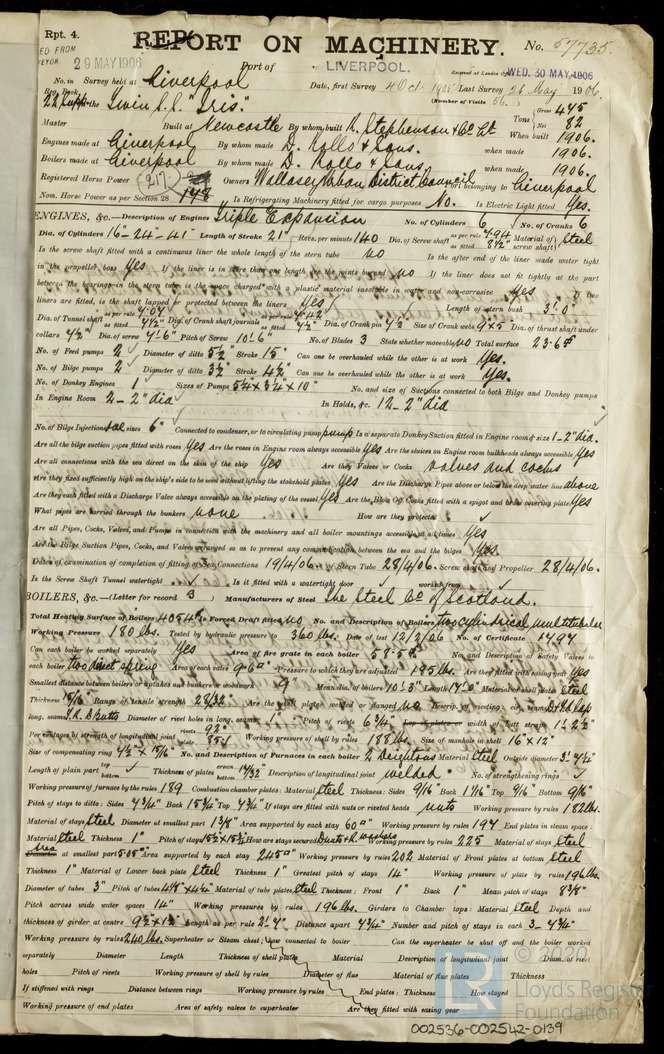 Rpt. 4.
REPORT ON MACHINERY. No. 57735.
29 MAY 1906
Port of LIVERPOOL.
Received at London Office WED. 30 MAY 1906
No. in Survey held at Liverpool Date, first Survey 4 Oct 1905 Last Survey 26 May 1906
Reg. Book. (Number of Visits 56.)
22 Supp. the Twin S.S. "Iris" Tons Gross 445 Net 82
Master Built at Newcastle By whom built R. Stephenson & Co Lt When built 1906.
Engines made at Liverpool By whom made D. Rollo & Sons. when made 1906.
Boilers made at Liverpool By whom made D. Rollo & Sons. when made 1906.
Registered Horse Power Owners Wallasey Urban District Council Port belonging to Liverpool
Nom. Horse Power as per Section 28 148 217. Is Refrigerating Machinery fitted for cargo purposes No. Is Electric Light fitted Yes.
ENGINES, &c.—Description of Engines Triple Expansion No. of Cylinders 6 No. of Cranks 6
Dia. of Cylinders 16"-24"-41" Length of Stroke 21" Revs. per minute 140 Dia. of Screw shaft as per rule 7.94 as fitted 8½" Material of screw shaft steel
Is the screw shaft fitted with a continuous liner the whole length of the stern tube no Is the after end of the liner made water tight
in the propeller boss Yes If the liner is in more than one length are the joints burned no If the liner does not fit tightly at the part
between the bearings in the stern tube, is the space charged with a plastic material insoluble in water and non-corrosive Yes If two
liners are fitted, is the shaft lapped or protected between the liners Yes Length of stern bush 3'.0"
Dia. of Tunnel shaft as per rule as fitted Dia. of Crank shaft journals as per rule as fitted Dia. of Crank pin Size of Crank webs 9x5 Dia. of thrust shaft under
collars Dia. of screw Pitch of Screw 10'.6" No. of Blades 3 State whether moveable no Total surface 23.6
No. of Feed pumps 2 Diameter of ditto 5½" Stroke 15" Can one be overhauled while the other is at work Yes.
No. of Bilge pumps 2 Diameter of ditto 3½" Stroke 4½" Can one be overhauled while the other is at work Yes.
No. of Donkey Engines 1 Sizes of Pumps No. and size of Suctions connected to both Bilge and Donkey pumps
In Engine Room 2-2" dia In Holds, &c. 12-2" dia
No. of Bilge Injections sizes 6" Connected to condenser, or to circulating pump pump Is a separate Donkey Suction fitted in Engine room & size 1-2" dia.
Are all the bilge suction pipes fitted with roses Yes Are the roses in Engine room always accessible Yes Are the sluices on Engine room bulkheads always accessible Yes
Are all connections with the sea direct on the skin of the ship Yes Are they Valves or Cocks valves and cocks
Are they fixed sufficiently high on the ship's side to be seen without lifting the stokehold plates Yes Are the Discharge Pipes above or below the deep water line above
Are they each fitted with a Discharge Valve always accessible on the plating of the vessel Yes Are the Blow Off Cocks fitted with a spigot and brass covering plate Yes
What pipes are carried through the bunkers none How are they protected
Are all Pipes, Cocks, Valves, and Pumps in connection with the machinery and all boiler mountings accessible at all times Yes
Are the Bilge Suction Pipes, Cocks, and Valves arranged so as to prevent any communication between the sea and the bilges Yes.
Dates of examination of completion of fitting of Sea Connections 19/4/06. of Stern Tube 28/4/06. Screw shaft and Propeller 28/4/06.
Is the Screw Shaft Tunnel watertight Is it fitted with a watertight door worked from
BOILERS, &c.—(Letter for record S) Manufacturers of Steel The Steel Co of Scotland.
Total Heating Surface of Boilers 4054 Is Forced Draft fitted no No. and Description of Boilers two cylindrical multitubular
Working Pressure 180 lbs. Tested by hydraulic pressure to 360 lbs. Date of test 12/2/06 No. of Certificate 1797
Can each boiler be worked separately Yes Area of fire grate in each boiler 58.5 No. and Description of Safety Valves to
each boiler two direct spring Area of each valve 9.6 Pressure to which they are adjusted 185 lbs. Are they fitted with easing gear Yes
Smallest distance between boilers or uptakes and bunkers or woodwork 9" Mean dia. of boilers 10'.3" Length Material of shell plates steel
Thickness 15/16" Range of tensile strength 28/32 Are the shell plates welded or flanged no Descrip. of riveting: cir. seams D.R. lap
long. seams T.R. D Butts Diameter of rivet holes in long. seams 1" Pitch of rivets 6¾" Lap of plates or width of butt straps 1'.2½"
Per centages of strength of longitudinal joint rivets 92 plate 85 Working pressure of shell by rules 188 lbs. Size of manhole in shell 16" x 12"
Size of compensating ring 4½" x 15/16" No. and Description of Furnaces in each boiler 2 Deightons Material steel Outside diameter
Length of plain part top bottom Thickness of plates crown bottom 19/32 Description of longitudinal joint welded. No. of strengthening rings
Working pressure of furnace by the rules 189 Combustion chamber plates: Material steel Thickness: Sides 9/16" Back Top 9/16" Bottom 9/16"
Pitch of stays to ditto: Sides Back Top If stays are fitted with nuts or riveted heads nuts Working pressure by rules 182 lbs.
Material of stays steel Diameter at smallest part 1⅜" Area supported by each stay 60 Working pressure by rules 197 End plates in steam space:
Material steel Thickness 1" Pitch of stays How are stays secured D nuts & R. washers Working pressure by rules 225 Material of stays steel
Area at smallest part Area supported by each stay 245 Working pressure by rules 202 Material of Front plates at bottom steel
Thickness 1" Material of Lower back plate steel Thickness 1" Greatest pitch of stays 14" Working pressure of plate by rules 196 lbs.
Diameter of tubes 3" Pitch of tubes Material of tube plates steel Thickness: Front 1" Back 1" Mean pitch of stays 8⅜"
Pitch across wide water spaces 14" Working pressures by rules 196 lbs. Girders to Chamber tops: Material steel Depth and
thickness of girder at centre Length as per rule 2'.7" Distance apart Number and pitch of stays in each
Working pressure by rules 240 lbs. Superheater or Steam chest; how connected to boiler Can the superheater be shut off and the boiler worked
separately Diameter Length Thickness of shell plates Material Description of longitudinal joint Diam. of rivet
holes Pitch of rivets Working pressure of shell by rules Diameter of flue Material of flue plates Thickness
If stiffened with rings Distance between rings Working pressure by rules End plates: Thickness How stayed
Working pressure of end plates Area of safety valves to superheater Are they fitted with easing gear
© 2020
LR
Lloyd's Register
Foundation
002536-002542-0139